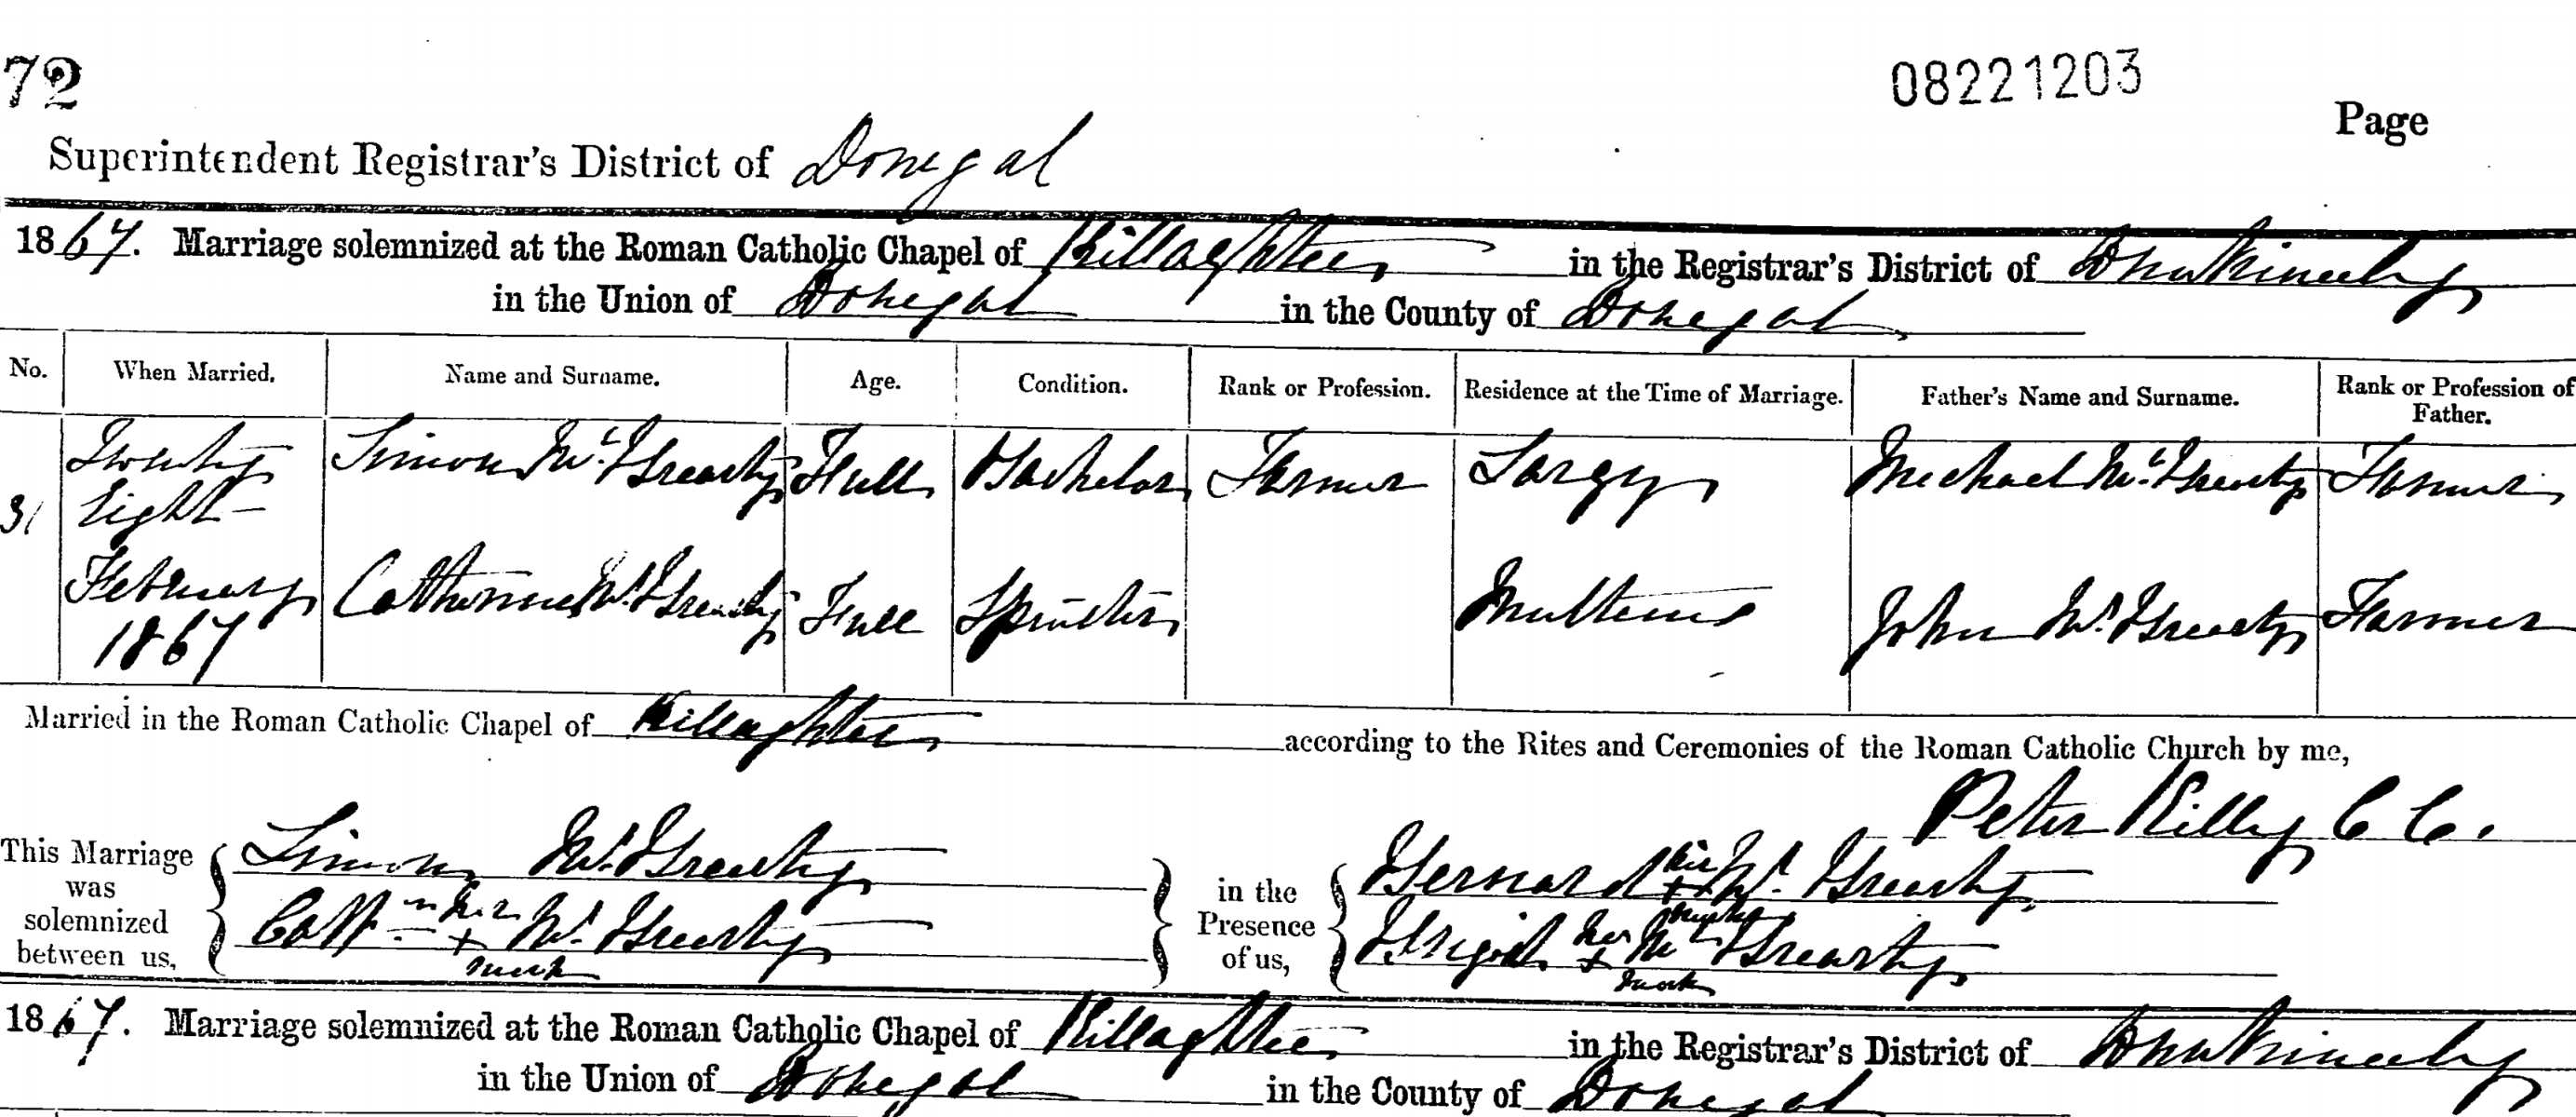 72
08221203
Page
Superintendent Registrar's District of Donegal
1867. Marriage solemnized at the Roman Catholic Chapel of Killaghtee in the Registrar's District of Dunkineely
in the Union of Donegal in the County of Donegal
No. When Married. Name and Surname. Age. Condition. Rank or Profession. Residence at the Time of Marriage. Father's Name and Surname. Rank or Profession of Father.
31 Twenty Eight February 1867
Simon McGroarty Full Bachelor Farmer Largy Michael McGroarty Farmer
Catherine McGroarty Full Spinster John McGroarty Farmer
Married in the Roman Catholic Chapel of Killaghtee according to the Rites and Ceremonies of the Roman Catholic Church by me,
Peter Kelly C C.
This Marriage was solemnized between us,
Simon McGroarty
Cathn her + mark McGroarty
in the Presence of us,
Bernard his + mark McGroarty
Brigid her + mark McGroarty
1867. Marriage solemnized at the Roman Catholic Chapel of Killaghtee in the Registrar's District of Dunkineely
in the Union of Donegal in the County of Donegal